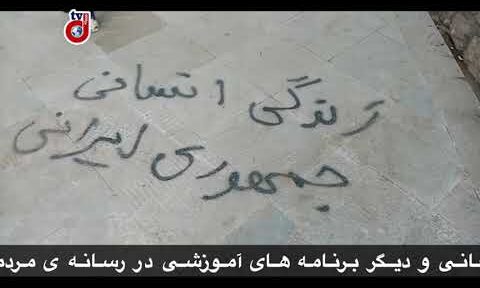 tv
زندگی انسانی
جمهوری ایرانی
سانی و دیگر برنامه های آموزشی در رسانه ی مردم